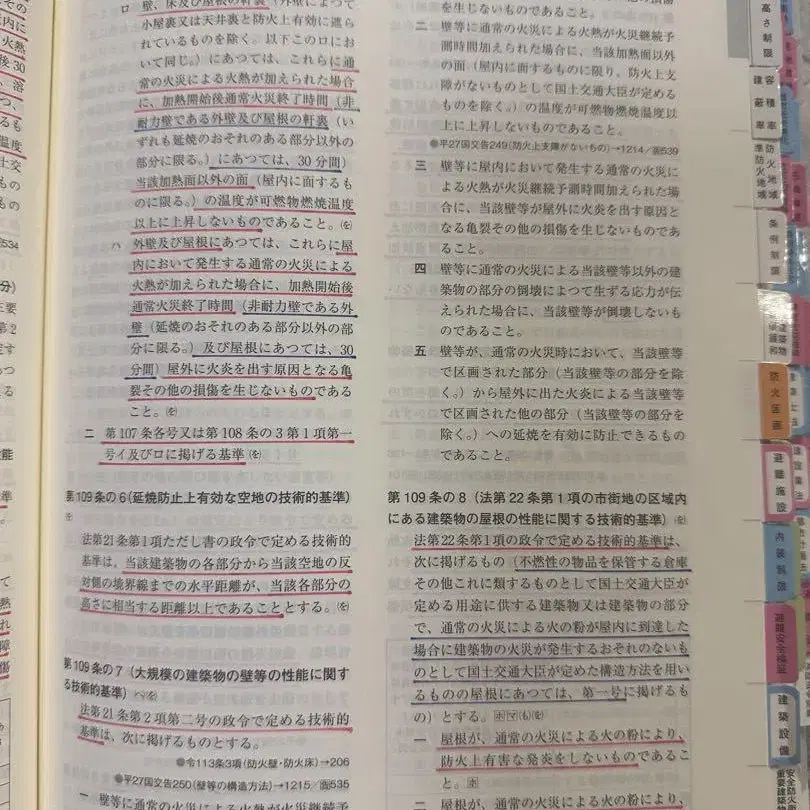 ロ 壁、床及び屋根の軒裏（外壁によつて
小屋裏又は天井裏と防火上有効に遮ら
れているものを除く。以下この口にお
いて同じ。）にあつては、これらに通
常の火災による火熱が加えられた場合
に、加熱開始後通常火災終了時間（非
耐力壁である外壁及び屋根の軒裏（い
ずれも延焼のおそれのある部分以外の
部分に限る。）にあつては、30分間）
当該加熱面以外の面（屋内に面するも
のに限る。）の温度が可燃物燃焼温度
以上に上昇しないものであること。㋾
ハ 外壁及び屋根にあつては、これらに屋
内において発生する通常の火災による
火熱が加えられた場合に、加熱開始後
通常火災終了時間（非耐力壁である外
壁（延焼のおそれのある部分以外の部
分に限る。）及び屋根にあつては、30
分間）屋外に火炎を出す原因となる亀
裂その他の損傷を生じないものである
こと。㋾
二 第107条各号又は第108条の3第1項第一
号イ及びロに掲げる基準㋾
第109条の6（延焼防止上有効な空地の技術的基準）
法第21条第1項ただし書の政令で定める技術的
基準は、当該建築物の各部分から当該空地の反
対側の境界線までの水平距離が、当該各部分の
高さに相当する距離以上であることとする。㋾
第109条の7（大規模の建築物の壁等の性能に関す
る技術的基準）
法第21条第2項第二号の政令で定める技術的
基準は、次に掲げるものとする。
●令113条3項（防火壁・防火床）→206
●平27国交告250（壁等の構造方法）→1215／面535
一 壁等に通常の火災による火熱が火災継続予
を生じないものであること。
二 壁等に通常の火災による火熱が火災継続予
測時間加えられた場合に、当該加熱面以外
の面（屋内に面するものに限り、防火上支
障がないものとして国土交通大臣が定める
ものを除く。）の温度が可燃物燃焼温度以
上に上昇しないものであること。
●平27国交告249（防火上支障がないもの）→1214／面539
三 壁等に屋内において発生する通常の火災に
よる火熱が火災継続予測時間加えられた場
合に、当該壁等が屋外に火炎を出す原因と
なる亀裂その他の損傷を生じないものであ
ること。
四 壁等に通常の火災による当該壁等以外の建
築物の部分の倒壊によつて生ずる応力が伝
えられた場合に、当該壁等が倒壊しないも
のであること。
五 壁等が、通常の火災時において、当該壁等
で区画された部分（当該壁等の部分を除
く。）から屋外に出た火炎による当該壁等
で区画された他の部分（当該壁等の部分を
除く。）への延焼を有効に防止できるもの
であること。
第109条の8（法第22条第1項の市街地の区域内
にある建築物の屋根の性能に関する技術的基準）㋾
法第22条第1項の政令で定める技術的基準は、
次に掲げるもの（不燃性の物品を保管する倉庫
その他これに類するものとして国土交通大臣が
定める用途に供する建築物又は建築物の部分
で、通常の火災による火の粉が屋内に到達した
場合に建築物の火災が発生するおそれのないも
のとして国土交通大臣が定めた構造方法を用い
るものの屋根にあつては、第一号に掲げるも
の）とする。
一 屋根が、通常の火災による火の粉により、
防火上有害な発炎をしないものであるこ
と。
二 屋根が、通常の火災による火の粉により、
高さ制限
容積率
建蔽率
防火地域
準防火地域
条例制限
防火区画
避難施設
内装制限
避難安全検証
建築設備